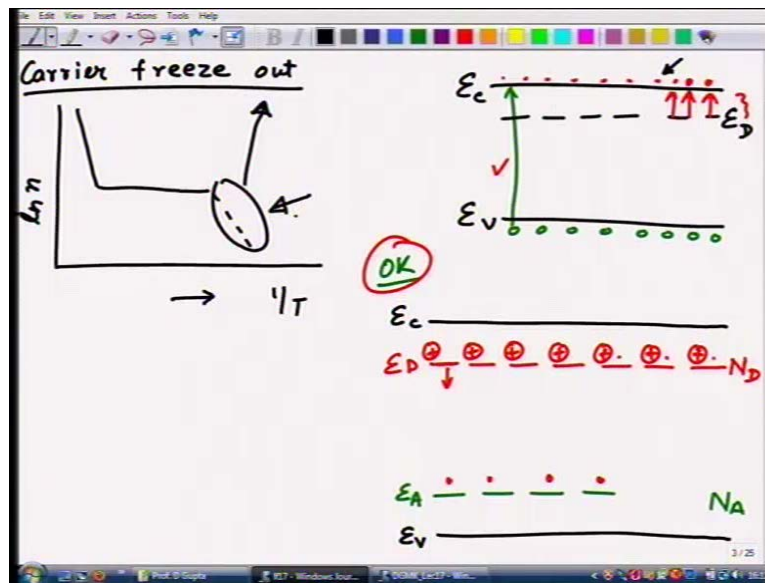 File Edit View Insert Actions Tools Help
Carrier freeze out
ln n
1/T
Ec
ED
Ev
OK
Ec
ED ND
EA NA
Ev
3 / 25
Prof. D Gupta